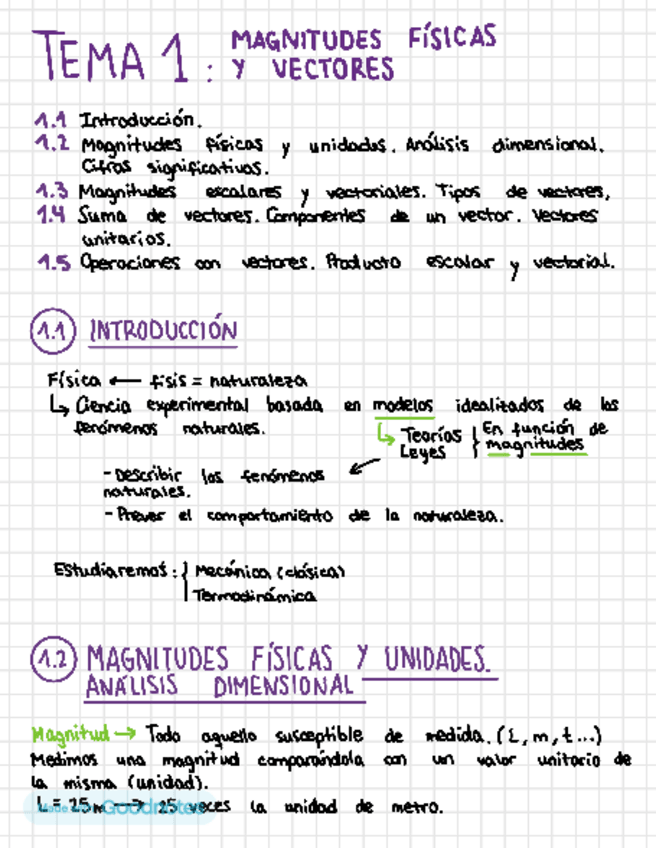 TEMA 1: MAGNITUDES FÍSICAS
Y VECTORES
1.1 Introducción.
1.2 Magnitudes físicas y unidades. Análisis dimensional.
Cifras significativas.
1.3 Magnitudes escalares y vectoriales. Tipos de vectores.
1.4 Suma de vectores. Componentes de un vector. Vectores
unitarios.
1.5 Operaciones con vectores. Producto escalar y vectorial.
1.1 INTRODUCCIÓN
Física ← fisis = naturaleza
↳ Ciencia experimental basada en modelos idealizados de los
fenómenos naturales.
↳ Teorías
Leyes
En función de
magnitudes
- Describir los fenómenos
naturales.
- Prever el comportamiento de la naturaleza.
Estudiaremos: Mecánica (clásica)
Termodinámica
1.2 MAGNITUDES FÍSICAS Y UNIDADES.
ANÁLISIS DIMENSIONAL
Magnitud → Todo aquello susceptible de medida. (L, m, t...)
Medimos una magnitud comparándola con un valor unitario de
la misma (unidad).
L = 25 m → 25 veces la unidad de metro.
Goodnotes